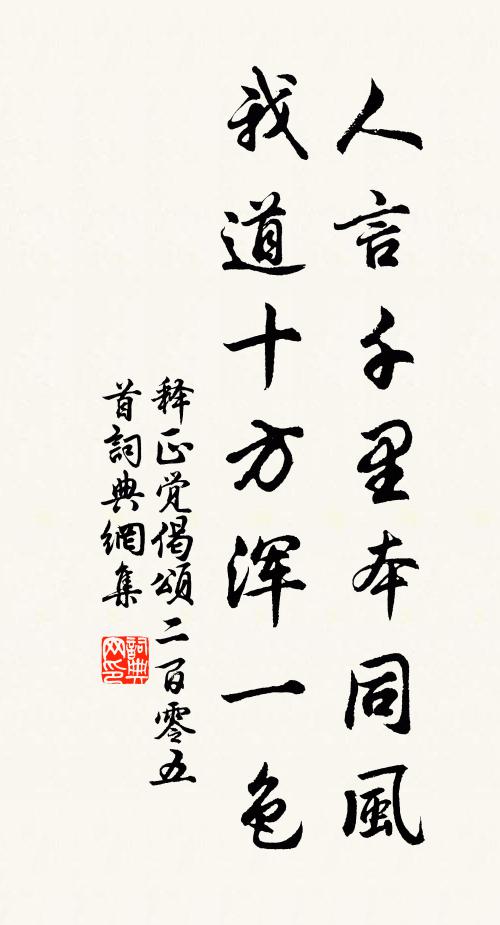 人言千里本同風
我道十方浑一色
释正觉偈頌二百零五
首詞典網集
詞典
网印